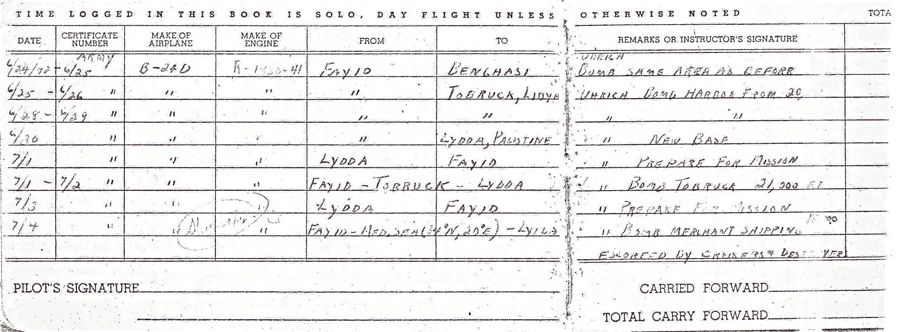 TIME LOGGED IN THIS BOOK IS SOLO, DAY FLIGHT UNLESS OTHERWISE NOTED TOTA
DATE CERTIFICATE NUMBER MAKE OF AIRPLANE MAKE OF ENGINE FROM TO REMARKS OR INSTRUCTOR'S SIGNATURE
ARMY UHRICH
6/24/42-6/25 B-24D FAYID BENGHASI BOMB SAME AREA AS BEFORE
6/25 - 6/26 " " " " TOBRUCK, LIBYA UHRICH BOMB HARBOR FROM 20,
6/28 - 6/29 " " " " " "
6/30 " " " " LYDDA, PALISTINE " NEW BASE
7/1 " " " LYDDA FAYID " PREPARE FOR MISSION
7/1 - 7/2 " " " FAYID - TOBRUCK - LYDDA " BOMB TOBRUCK 21,000 FT
7/3 " " " LYDDA FAYID " PREPARE FOR MISSION
7/4 " " " FAYID - MED, SEA (34°N, 20°E) - LYDDA " BOMB MERCHANT SHIPPING
ESCORTED BY CRUISERS & DESTROYERS
PILOT'S SIGNATURE CARRIED FORWARD
TOTAL CARRY FORWARD